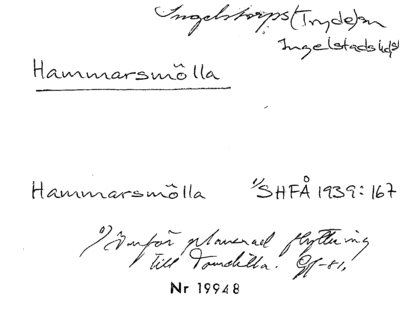 Ingelstorps (Tryde) sn
Ingelstads hd
Hammarsmölla
Hammarsmölla 1) SHFÅ 1939: 167
1) Inför planerad flyttning
till Tomelilla. Gf-81.
Nr 19948